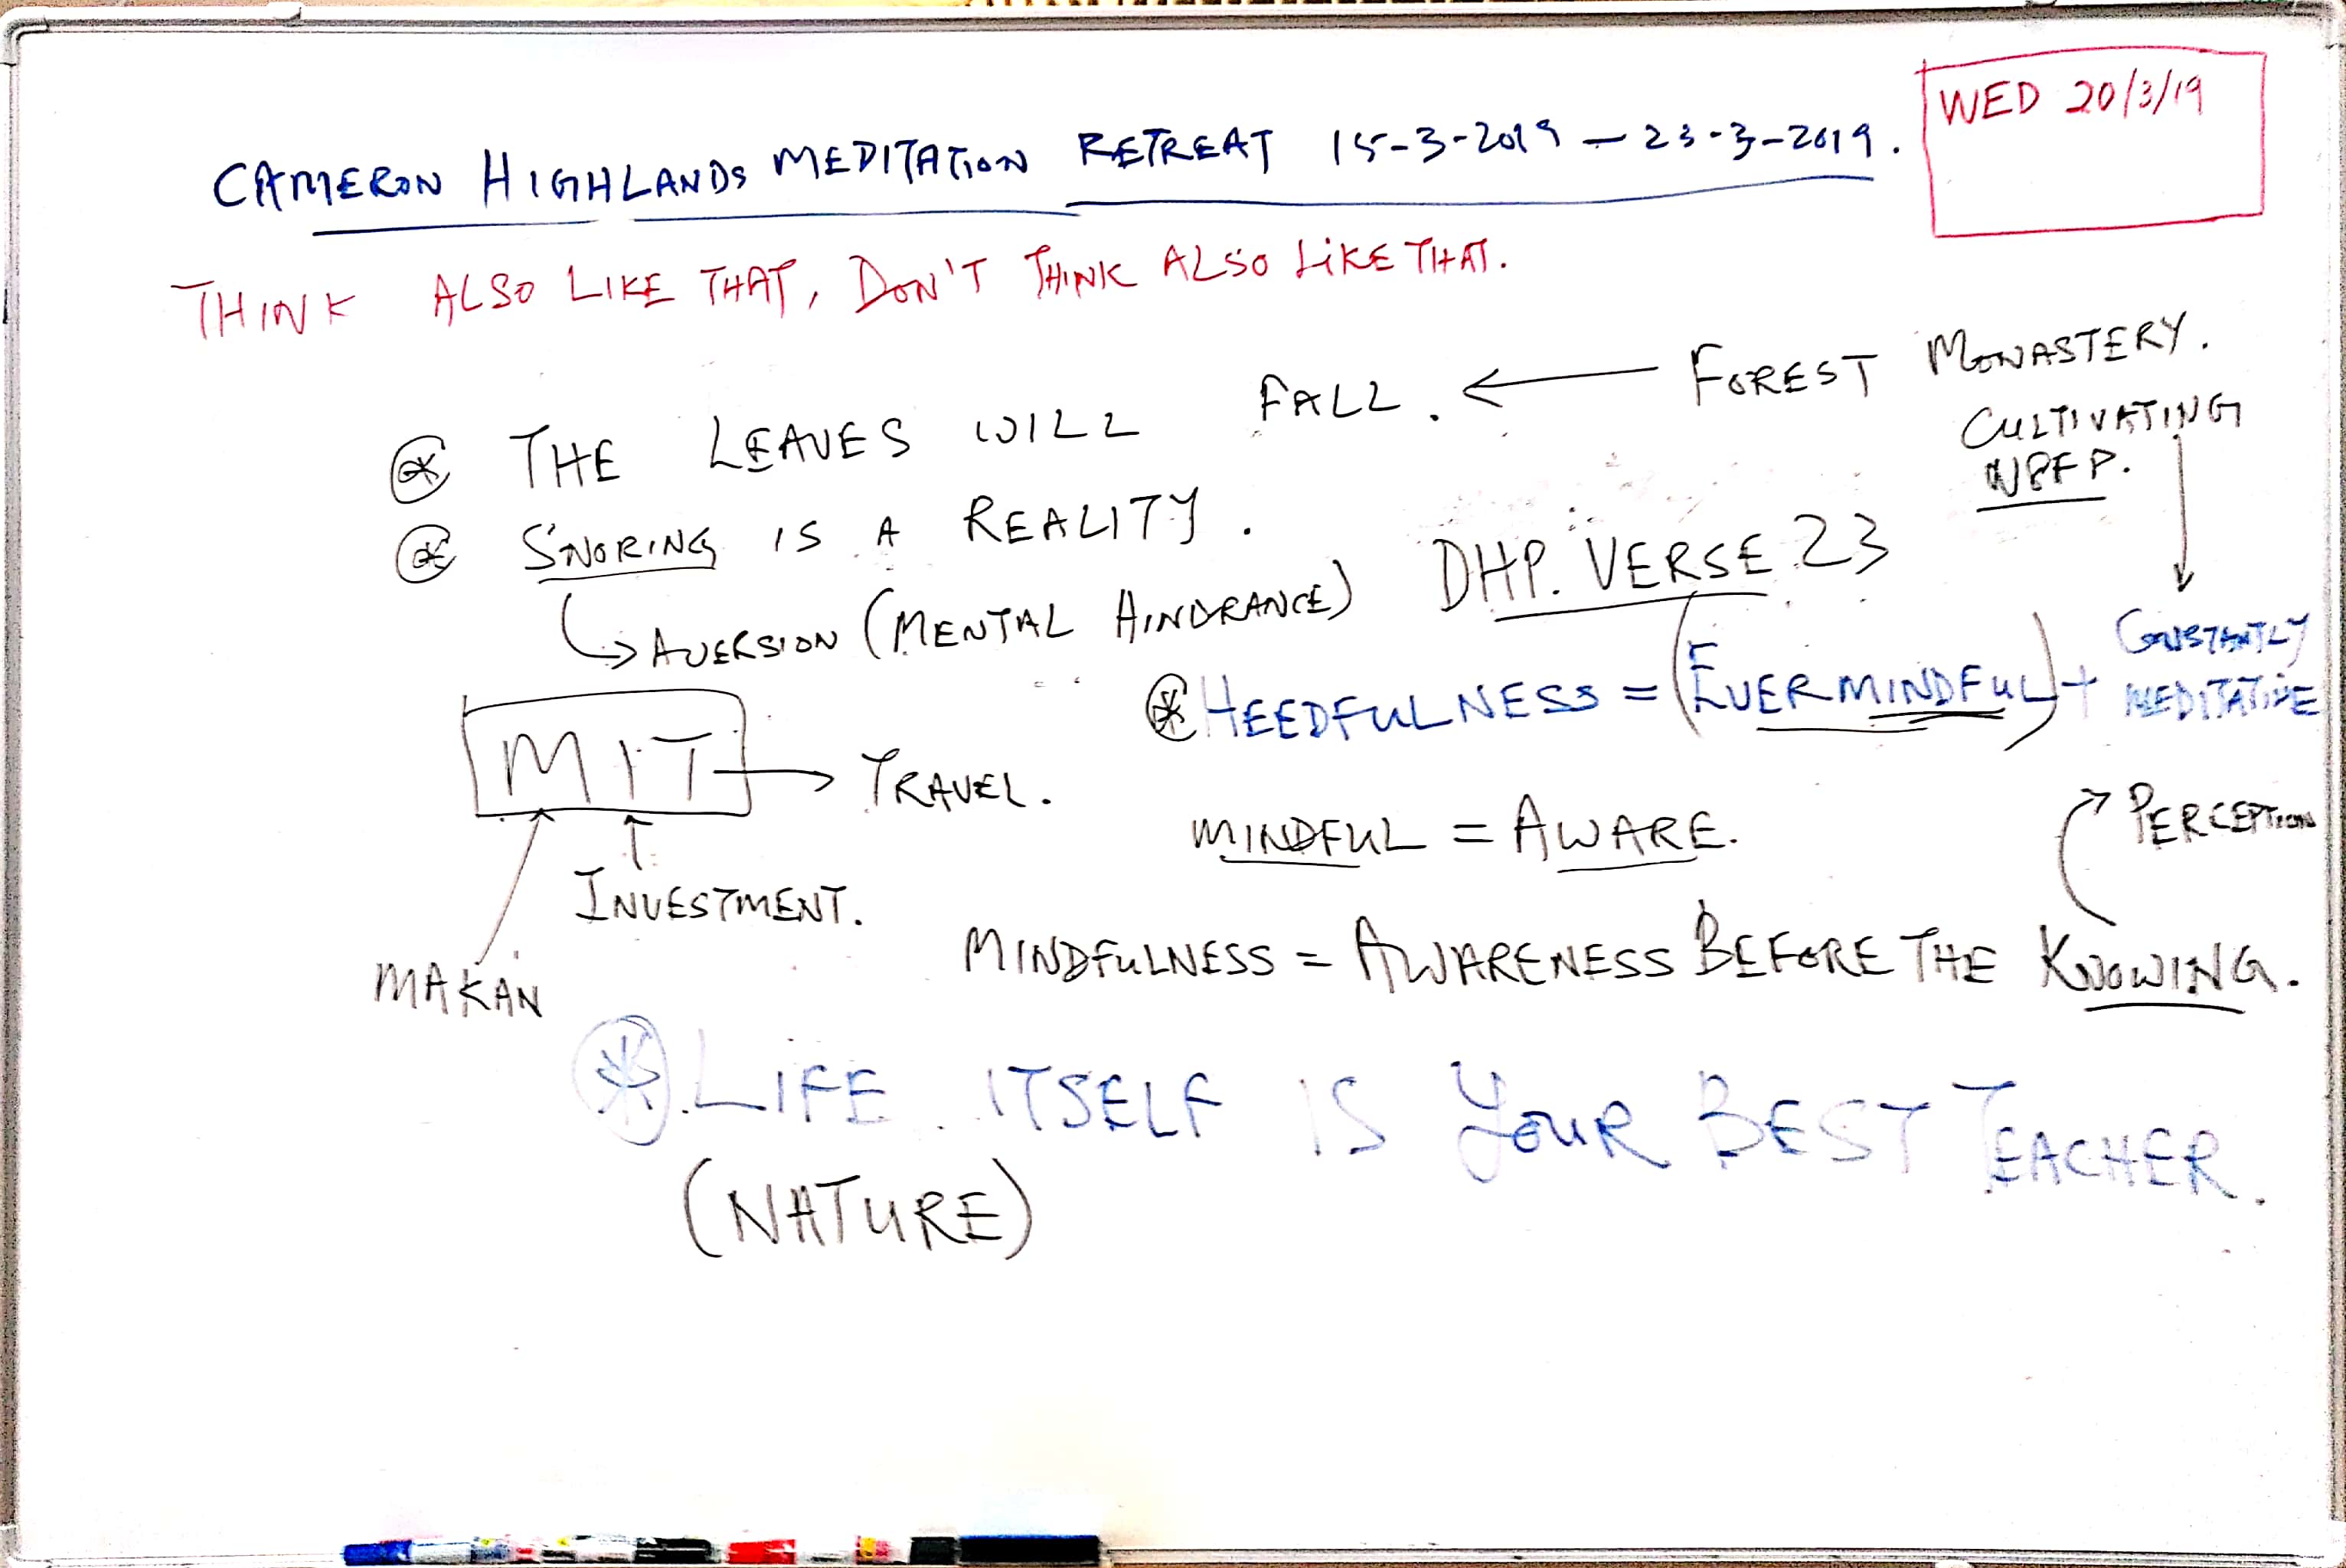 WED 20/3/19
CAMERON HIGHLANDS MEDITATION RETREAT 15-3-2019 – 23-3-2019.
THINK ALSO LIKE THAT, DON'T THINK ALSO LIKE THAT.
⊛ THE LEAVES WILL FALL. ← FOREST MONASTERY.
CULTIVATING
N8FP.
⊛ SNORING IS A REALITY.
↳ AVERSION (MENTAL HINDRANCE)
DHP. VERSE 23
⊛ HEEDFULNESS = (EVERMINDFUL) + CONSTANTLY
MEDITATIVE
MIT → TRAVEL.
INVESTMENT.
MAKAN
MINDFUL = AWARE.
PERCEPTION
MINDFULNESS = AWARENESS BEFORE THE KNOWING.
⊛ LIFE ITSELF IS YOUR BEST TEACHER.
(NATURE)